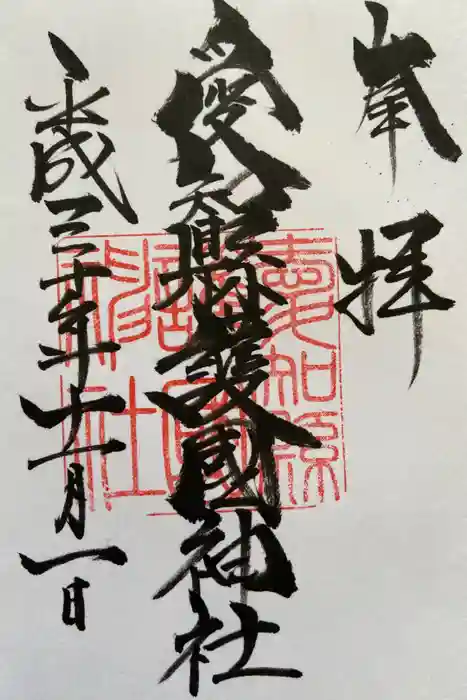 奉拝
愛知縣護國神社
平成三十年十一月一日
愛知縣
護國
神社